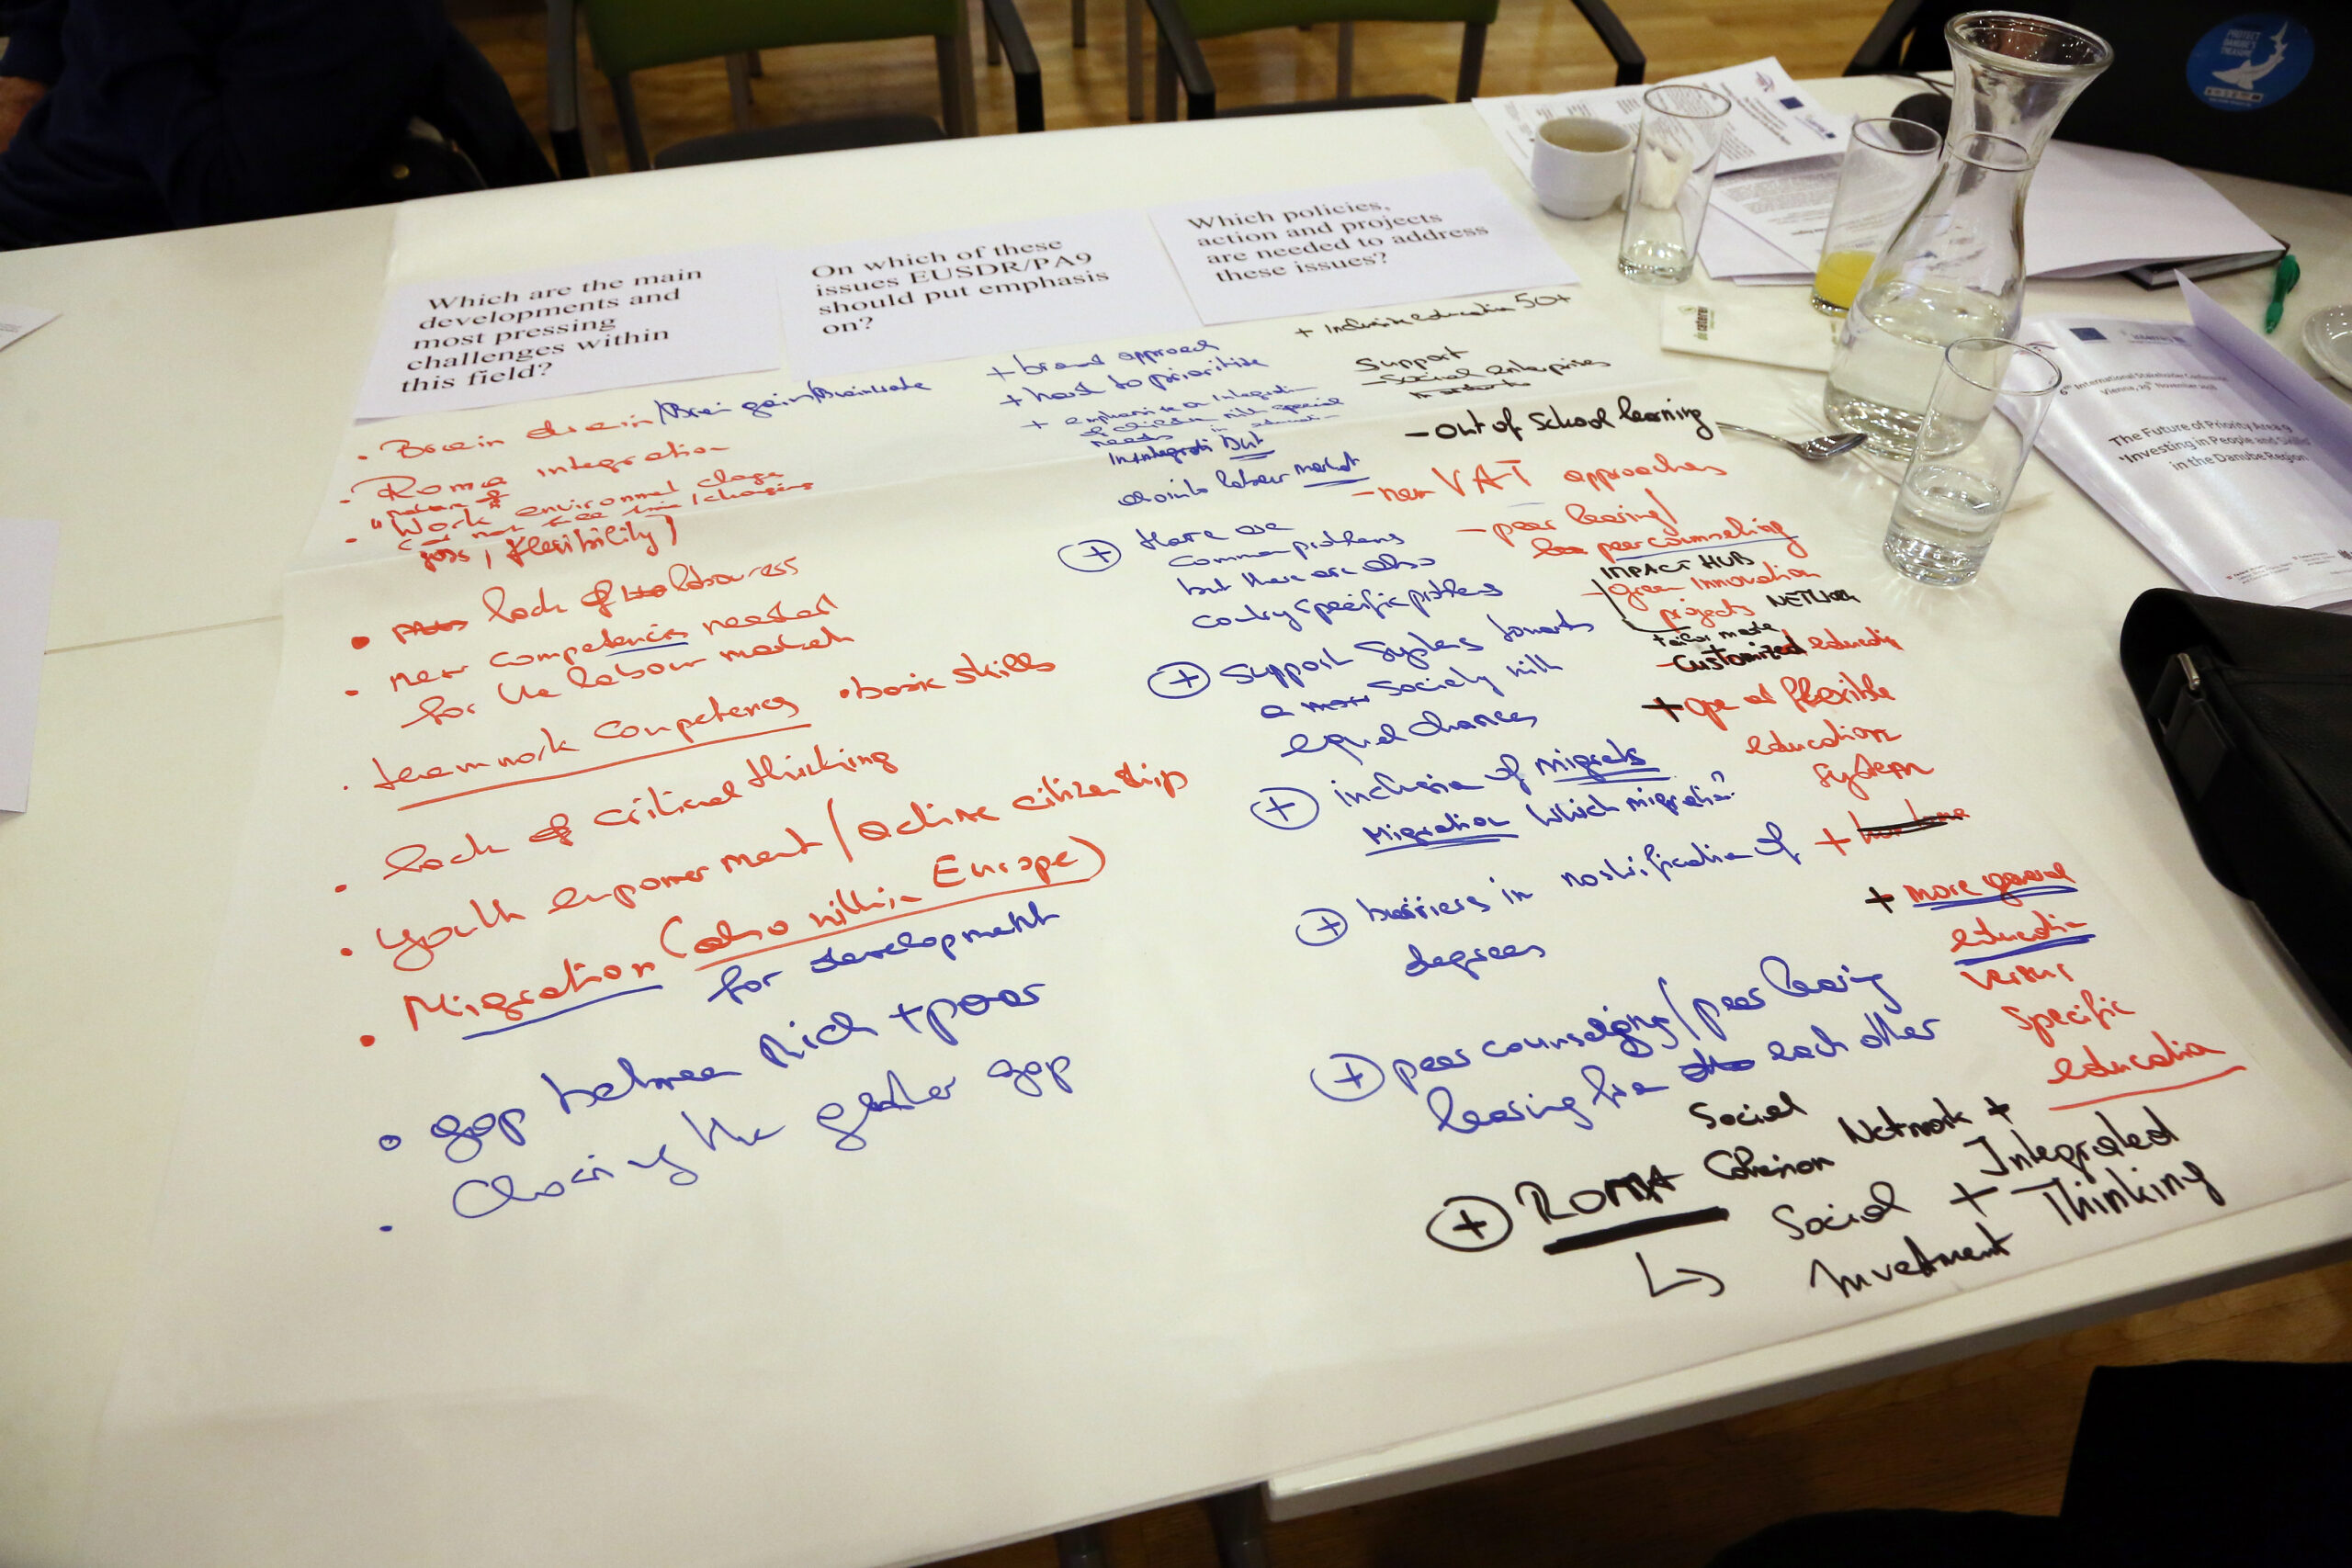 Which are the main
developments and
most pressing
challenges within
this field?
• Brain drain/Brain gain/Brain waste
• Roma integration
nature of
• "Work" environment change
jobs, flexibility)
• lack of labourers
• new competencies needed
for the labour market
• teamwork competency • basic skills
• lack of critical thinking
• youth empowerment / active citizenship
• Migration (also within Europe)
for development
• gap between Rich + poor
• Closing the gender gap
On which of these
issues EUSDR/PA9
should put emphasis
on?
+ broad approach
+ hard to prioritize
+ emphasize on Integration
of children with special
needs in education
but
also into labour market
+ there are
common problems
but there are also
country specific problems
+ Support Systems towards
a society with
equal chances
+ inclusion of migrants
Migration Which migration?
+ barriers in nostrification of
degrees
+ peer counseling/peer learing
learing from each other
+ ROMA
Social
Cohesion Network +
↳ Social + Integrated
Investment Thinking
Which policies,
action and projects
are needed to address
these issues?
+ Inclusive education 50+
Support
- Social enterprises
- out of School learning
- new VAT approaches
- peer learing/
peer counseling
IMPACT HUB
- green Innovation
projects NETWORK
tailor made
- Customized education
+ open and flexible
education
system
+
+ more general
education
versus
specific
education
6th International Stakeholder Conference
Vienna, 29th November 2018
The Future of Priority Area 9
"Investing in People and Skills"
in the Danube Region
PROTECT
DANUBE'S
TREASURE